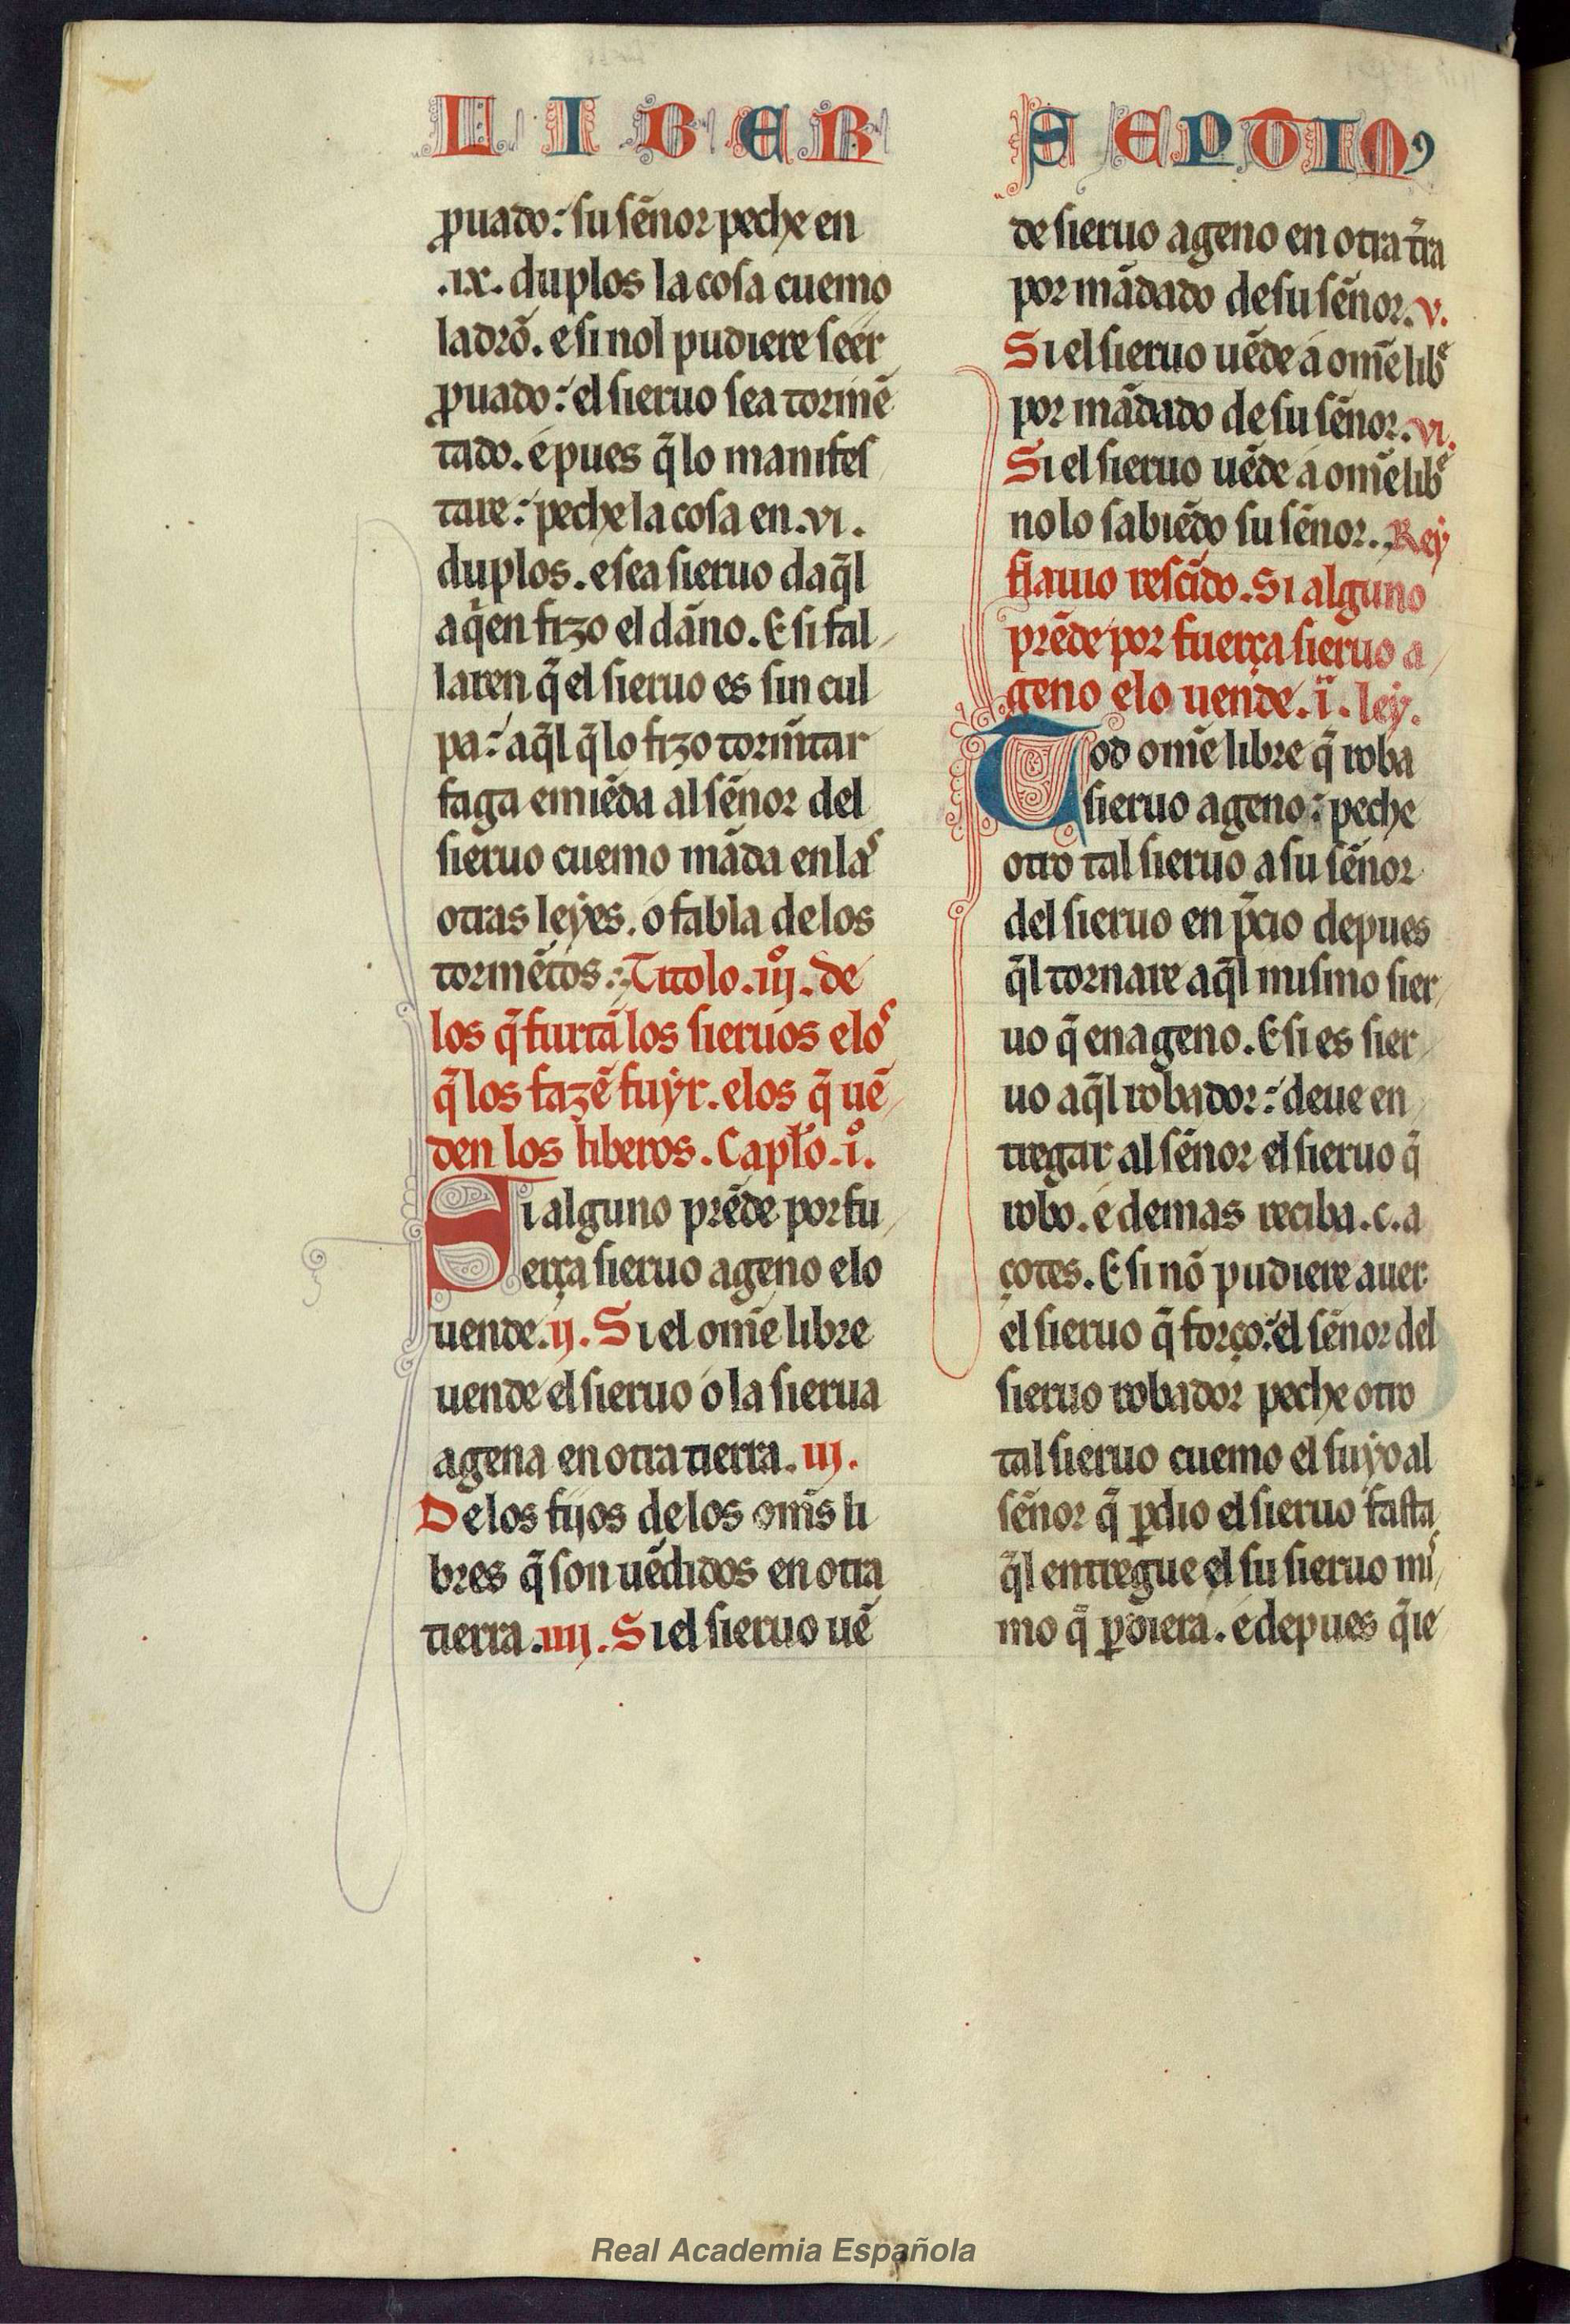 LIBER
ꝓuado: su sen̄or peche en
.ix. duplos la cosa cuemo
ladrō. e si nol pudiere seer
ꝓuado: el sieruo sea tormē
tado. e pues q̄ lo manifes
tare: peche la cosa en .vi.
duplos. e sea sieruo daq̄l
a qͥen fizo el dan̄o. E si fal
laren q̄ el sieruo es sin cul
pa: aq̄l q̄ lo fizo torm̄tar
faga emiēda al sen̄or del
sieruo cuemo māda en laˢ
otras leẏes. o fabla de los
tormētos: Titolo .iijº. de
los q̄ furtā los sieruos e loˢ
q̄ los fazē fuẏr. e los q̄ uē
den los liberos. Capło .iº.
Si alguno prēde por fu
erça sieruo ageno e lo
uende. ij. Si el om̄e libre
uende el sieruo o la sierua
agena en otra tierra. iij.
De los fijos de los om̄s li
bres q̄ son uēdidos en otra
tierra. iiij. Si el sieruo uē
SEPTIMꝰ
de sieruo ageno en otra tr̄a
por mādado de su sen̄or. v.
Si el sieruo uēde a om̄e libᵉ
por mādado de su sen̄or. vi.
Si el sieruo uēde a om̄e libᵉ
no lo sabiēdo su sen̄or. Reẏ
flauio rescīdo. Si alguno
prēde por fuerça sieruo a
geno e lo uende. i. leẏ.
Tod om̄e libre q̄ roba
sieruo ageno: peche
otro tal sieruo a su sen̄or
del sieruo en p̄cio depues
q̄l tornare aq̄l mismo sier
uo q̄ enageno. E si es sier
uo aq̄l robador: deue en
tregar al sen̄or el sieruo q̄
robo. e demas reciba .c. a
çotes. E si nō pudiere auer
el sieruo q̄ forço: el sen̄or del
sieruo robador peche otro
tal sieruo cuemo el suẏo al
sen̄or q̄ ꝑdio el sieruo fasta
q̄l entregue el su sieruo miˢ
mo q̄ ꝑdiera. e depues q̄ ie
Real Academia Española